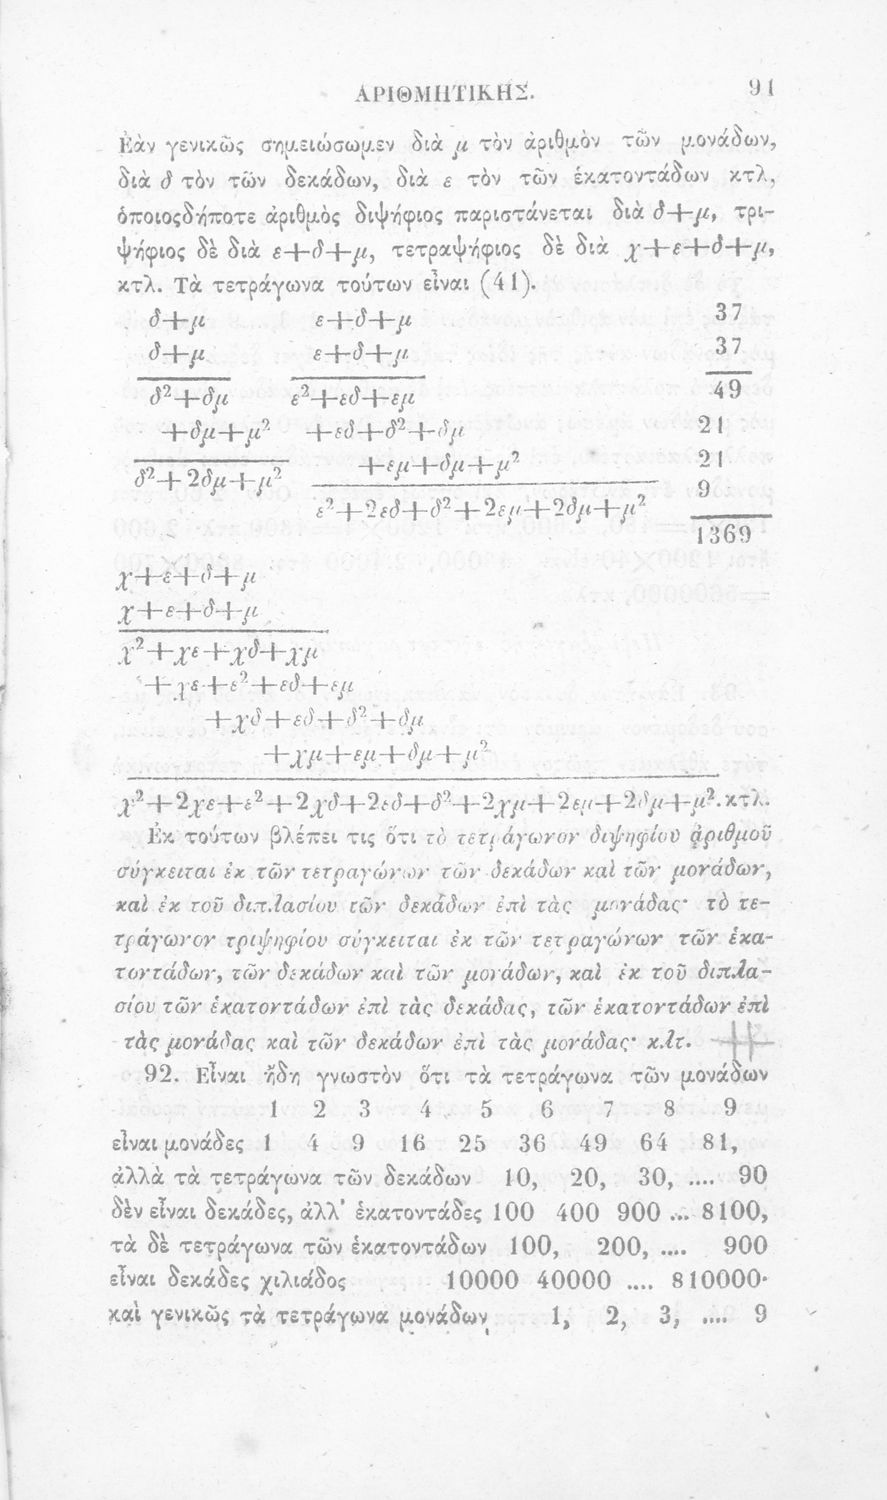 ΑΡΙΘΜΗΤΙΚΗΣ. 91
Ἐὰν γενικῶς σημειώσωμεν διὰ μ τὸν ἀριθμὸν τῶν μονάδων,
διὰ δ τὸν τῶν δεκάδων, διὰ ε τὸν τῶν ἑκατοντάδων κτλ,
ὁποιοςδήποτε ἀριθμὸς διψήφιος παριστάνεται διὰ δ+μ, τρι-
ψήφιος δὲ διὰ ε+δ+μ, τετραψήφιος δὲ διὰ χ+ε+δ+μ,
κτλ. Τὰ τετράγωνα τούτων εἶναι (41).
δ+μ ε+δ+μ 37
δ+μ ε+δ+μ 37
δ²+δμ ε²+εδ+εμ 49
+δμ+μ² +εδ+δ²+δμ 21
δ²+2δμ+μ² +εμ+δμ+μ² 21
ε²+2εδ+δ²+2εμ+2δμ+μ² 9
1369
χ+ε+δ+μ
χ+ε+δ+μ
χ²+χε+χδ+χμ
+χε+ε²+εδ+εμ
+χδ+εδ+δ²+δμ
+χμ+εμ+δμ+μ²
χ²+2χε+ε²+2χδ+2εδ+δ²+2χμ+2εμ+2δμ+μ².κτλ.
Ἐκ τούτων βλέπει τις ὅτι τὸ τετράγωνον διψηφίου ἀριθμοῦ
σύγκειται ἐκ τῶν τετραγώνων τῶν δεκάδων καὶ τῶν μονάδων,
καὶ ἐκ τοῦ διπλασίου τῶν δεκάδων ἐπὶ τὰς μονάδας· τὸ τε-
τράγωνον τριψηφίου σύγκειται ἐκ τῶν τετραγώνων τῶν ἑκα-
τοντάδων, τῶν δεκάδων καὶ τῶν μονάδων, καὶ ἐκ τοῦ διπλα-
σίου τῶν ἑκατοντάδων ἐπὶ τὰς δεκάδας, τῶν ἑκατοντάδων ἐπὶ
τὰς μονάδας καὶ τῶν δεκάδων ἐπὶ τὰς μονάδας· κλτ.
92. Εἶναι ἤδη γνωστὸν ὅτι τὰ τετράγωνα τῶν μονάδων
1 2 3 4 5 6 7 8 9
εἶναι μονάδες 1 4 9 16 25 36 49 64 81,
ἀλλὰ τὰ τετράγωνα τῶν δεκάδων 10, 20, 30, .... 90
δὲν εἶναι δεκάδες, ἀλλ' ἑκατοντάδες 100 400 900 ... 8100,
τὰ δὲ τετράγωνα τῶν ἑκατοντάδων 100, 200, .... 900
εἶναι δεκάδες χιλιάδος 10000 40000 .... 810000·
καὶ γενικῶς τὰ τετράγωνα μονάδων 1, 2, 3, .... 9